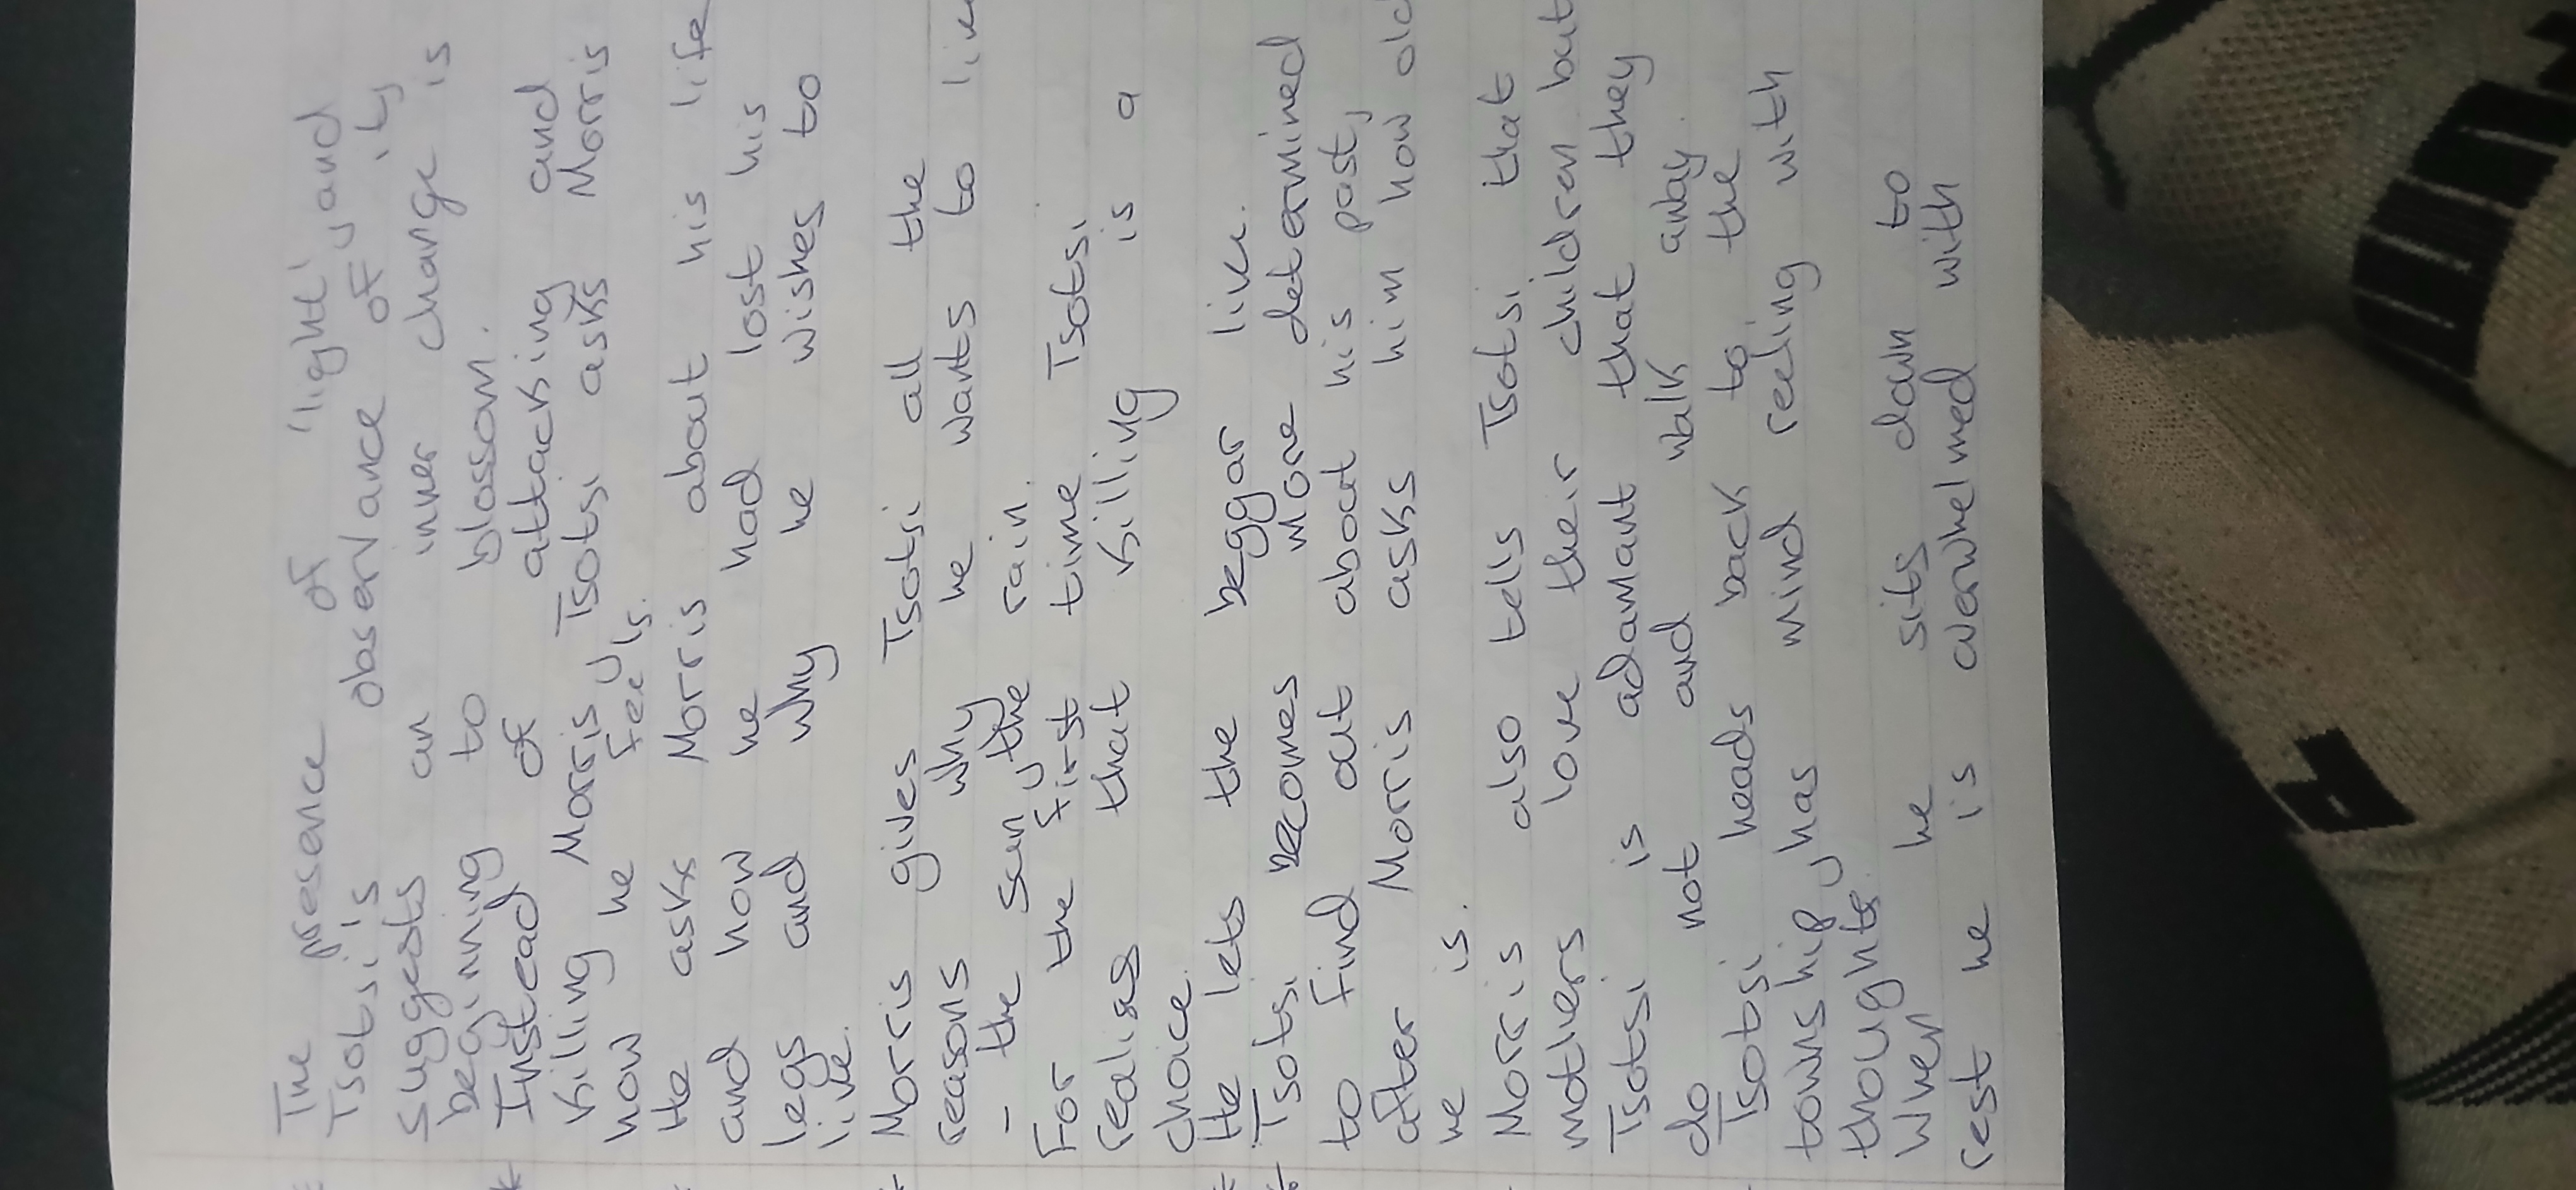 The presence of 'light' and
Tsotsi's observance of it,
suggests an inner change is
beginning to blossom.
* Instead of attacking and
killing Morris, Tsotsi asks Morris
how he feels.
He asks Morris about his life
and how he had lost his
legs and why he wishes to
live.
Morris gives Tsotsi all the
reasons why he wants to live
- the sun, the rain.
For the first time Tsotsi
realises that killing is a
choice.
He lets the beggar live.
Tsotsi becomes more determined
to find out about his past,
after Morris asks him how old
he is.
Morris also tells Tsotsi that
mothers love their children but
Tsotsi is adamant that they
do not and walk away.
Tsotsi heads back to the
township, has mind reeling with
thoughts.
When he sits down to
rest he is overwhelmed with